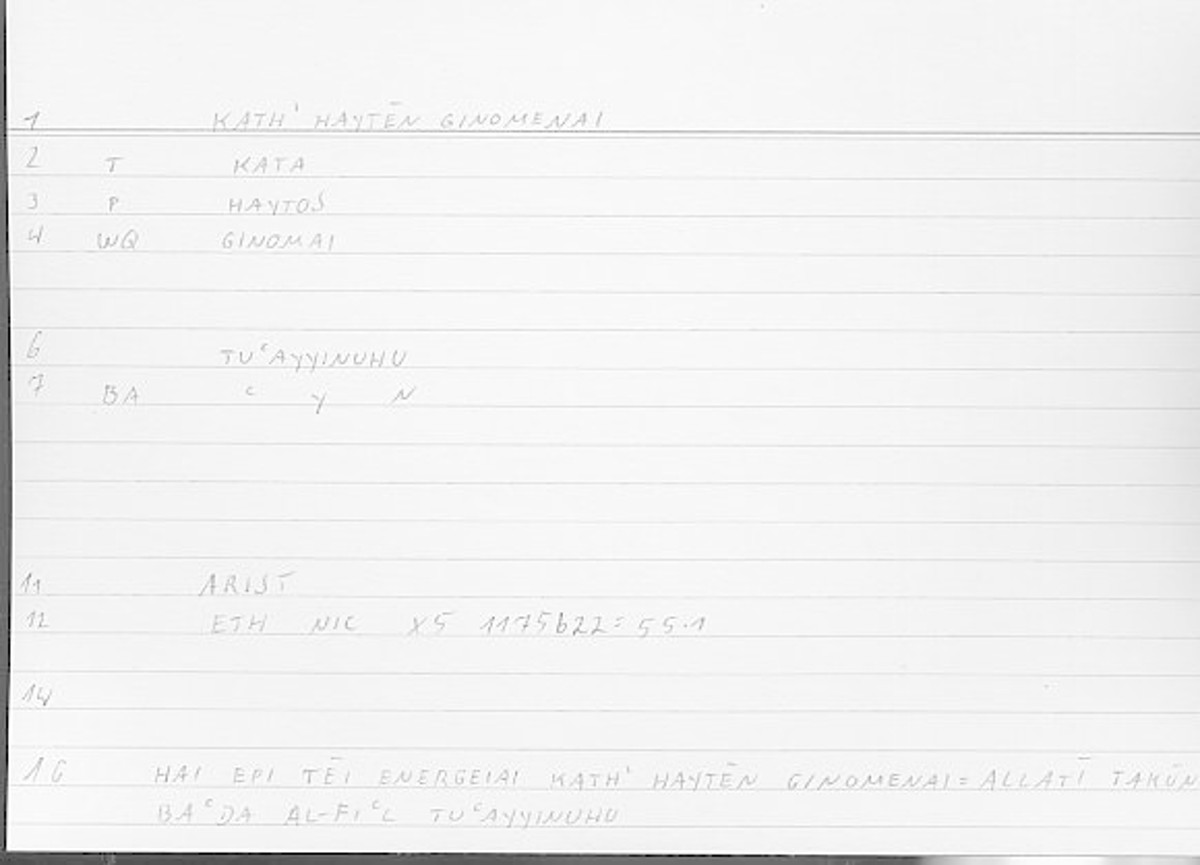 1 KATH' HAYTĒN GINOMENAI
2 T KATA
3 P HAYTOS
4 WQ GINOMAI
6 TUʿAYYINUHU
7 BA ʿ Y N
11 ARIST
12 ETH NIC X5 1175b22=55.1
14
16 HAI EPI TĒI ENERGEIAI KATH' HAYTĒN GINOMENAI=ALLATĪ TAKŪN
BAʿDA AL-FIʿL TUʿAYYINUHU